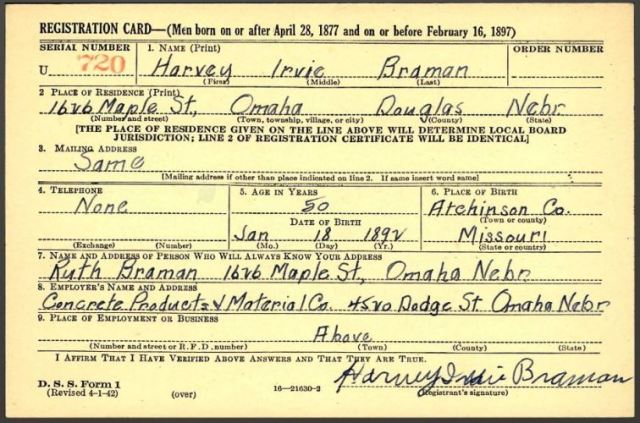 REGISTRATION CARD—(Men born on or after April 28, 1877 and on or before February 16, 1897)
SERIAL NUMBER 1. NAME (Print) ORDER NUMBER
U 720 Harvey Irvie Braman
(First) (Middle) (Last)
2 PLACE OF RESIDENCE (Print)
1626 Maple St, Omaha Douglas Nebr
(Number and street) (Town, township, village, or city) (County) (State)
[THE PLACE OF RESIDENCE GIVEN ON THE LINE ABOVE WILL DETERMINE LOCAL BOARD
JURISDICTION; LINE 2 OF REGISTRATION CERTIFICATE WILL BE IDENTICAL]
3. MAILING ADDRESS
Same
[Mailing address if other than place indicated on line 2. If same insert word same]
4. TELEPHONE 5. AGE IN YEARS 6. PLACE OF BIRTH
None 50 Atchinson Co.
DATE OF BIRTH (Town or county)
Jan 18 1892 Missouri
(Exchange) (Number) (Mo.) (Day) (Yr.) (State or country)
7. NAME AND ADDRESS OF PERSON WHO WILL ALWAYS KNOW YOUR ADDRESS
Ruth Braman 1626 Maple St, Omaha Nebr
8. EMPLOYER'S NAME AND ADDRESS
Concrete Products & Material Co. 4520 Dodge St Omaha Nebr
9. PLACE OF EMPLOYMENT OR BUSINESS
Above
(Number and street or R. F. D. number) (Town) (County) (State)
I AFFIRM THAT I HAVE VERIFIED ABOVE ANSWERS AND THAT THEY ARE TRUE.
Harvey Irvie Braman
D. S. S. Form 1
(Revised 4-1-42) (over) 16—21630-2 (Registrant's signature)